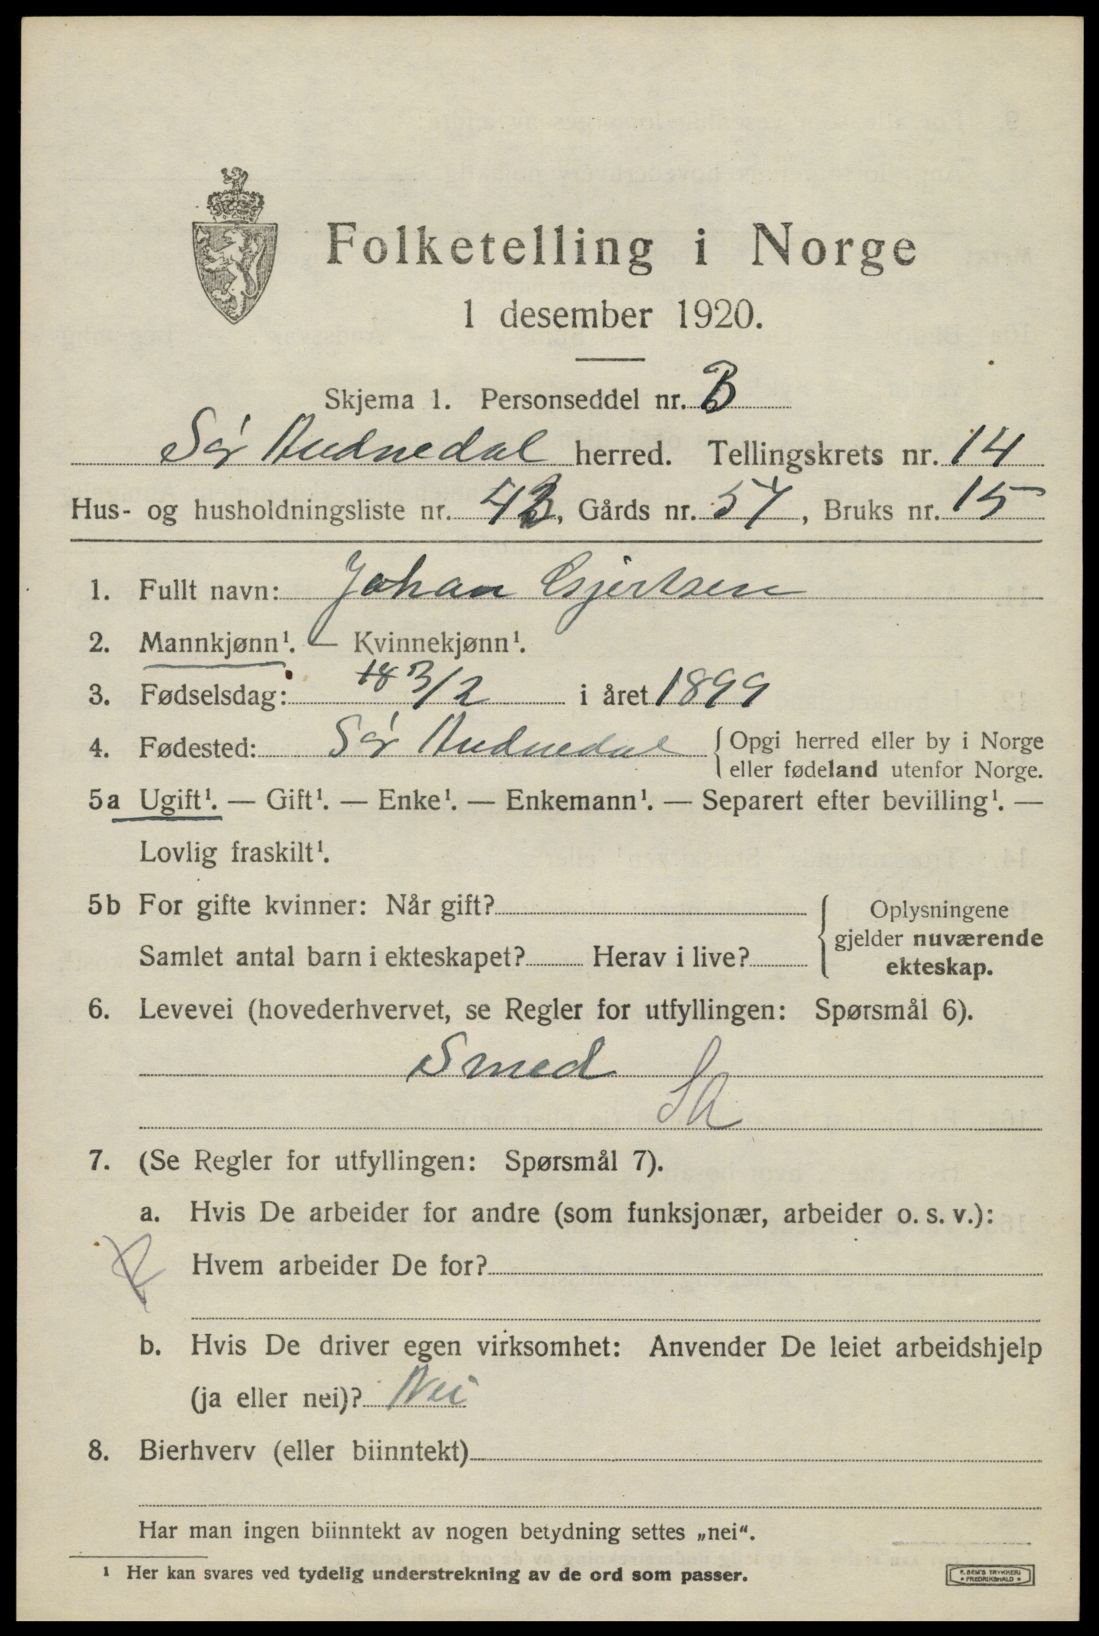 Folketelling i Norge
1 desember 1920.
Skjema 1. Personseddel nr. B
Sør Audnedal herred. Tellingskrets nr. 14
Hus- og husholdningsliste nr. 43, Gårds nr. 54, Bruks nr. 15
1. Fullt navn: Johan Gjertsen
2. Mannkjønn¹. — Kvinnekjønn¹.
3. Fødselsdag: 18 3/2 i året 1899
4. Fødested: Sør Audnedal { Opgi herred eller by i Norge
eller fødeland utenfor Norge.
5a Ugift¹. — Gift¹. — Enke¹. — Enkemann¹. — Separert efter bevilling¹. —
Lovlig fraskilt¹.
5b For gifte kvinner: Når gift? { Oplysningene
gjelder nuværende
Samlet antal barn i ekteskapet? Herav i live? ekteskap.
6. Levevei (hovederhvervet, se Regler for utfyllingen: Spørsmål 6).
Smed
7. (Se Regler for utfyllingen: Spørsmål 7).
a. Hvis De arbeider for andre (som funksjonær, arbeider o. s. v.):
Hvem arbeider De for?
b. Hvis De driver egen virksomhet: Anvender De leiet arbeidshjelp
(ja eller nei)? Nei
8. Bierhverv (eller biinntekt)
Har man ingen biinntekt av nogen betydning settes „nei“.
¹ Her kan svares ved tydelig understrekning av de ord som passer.